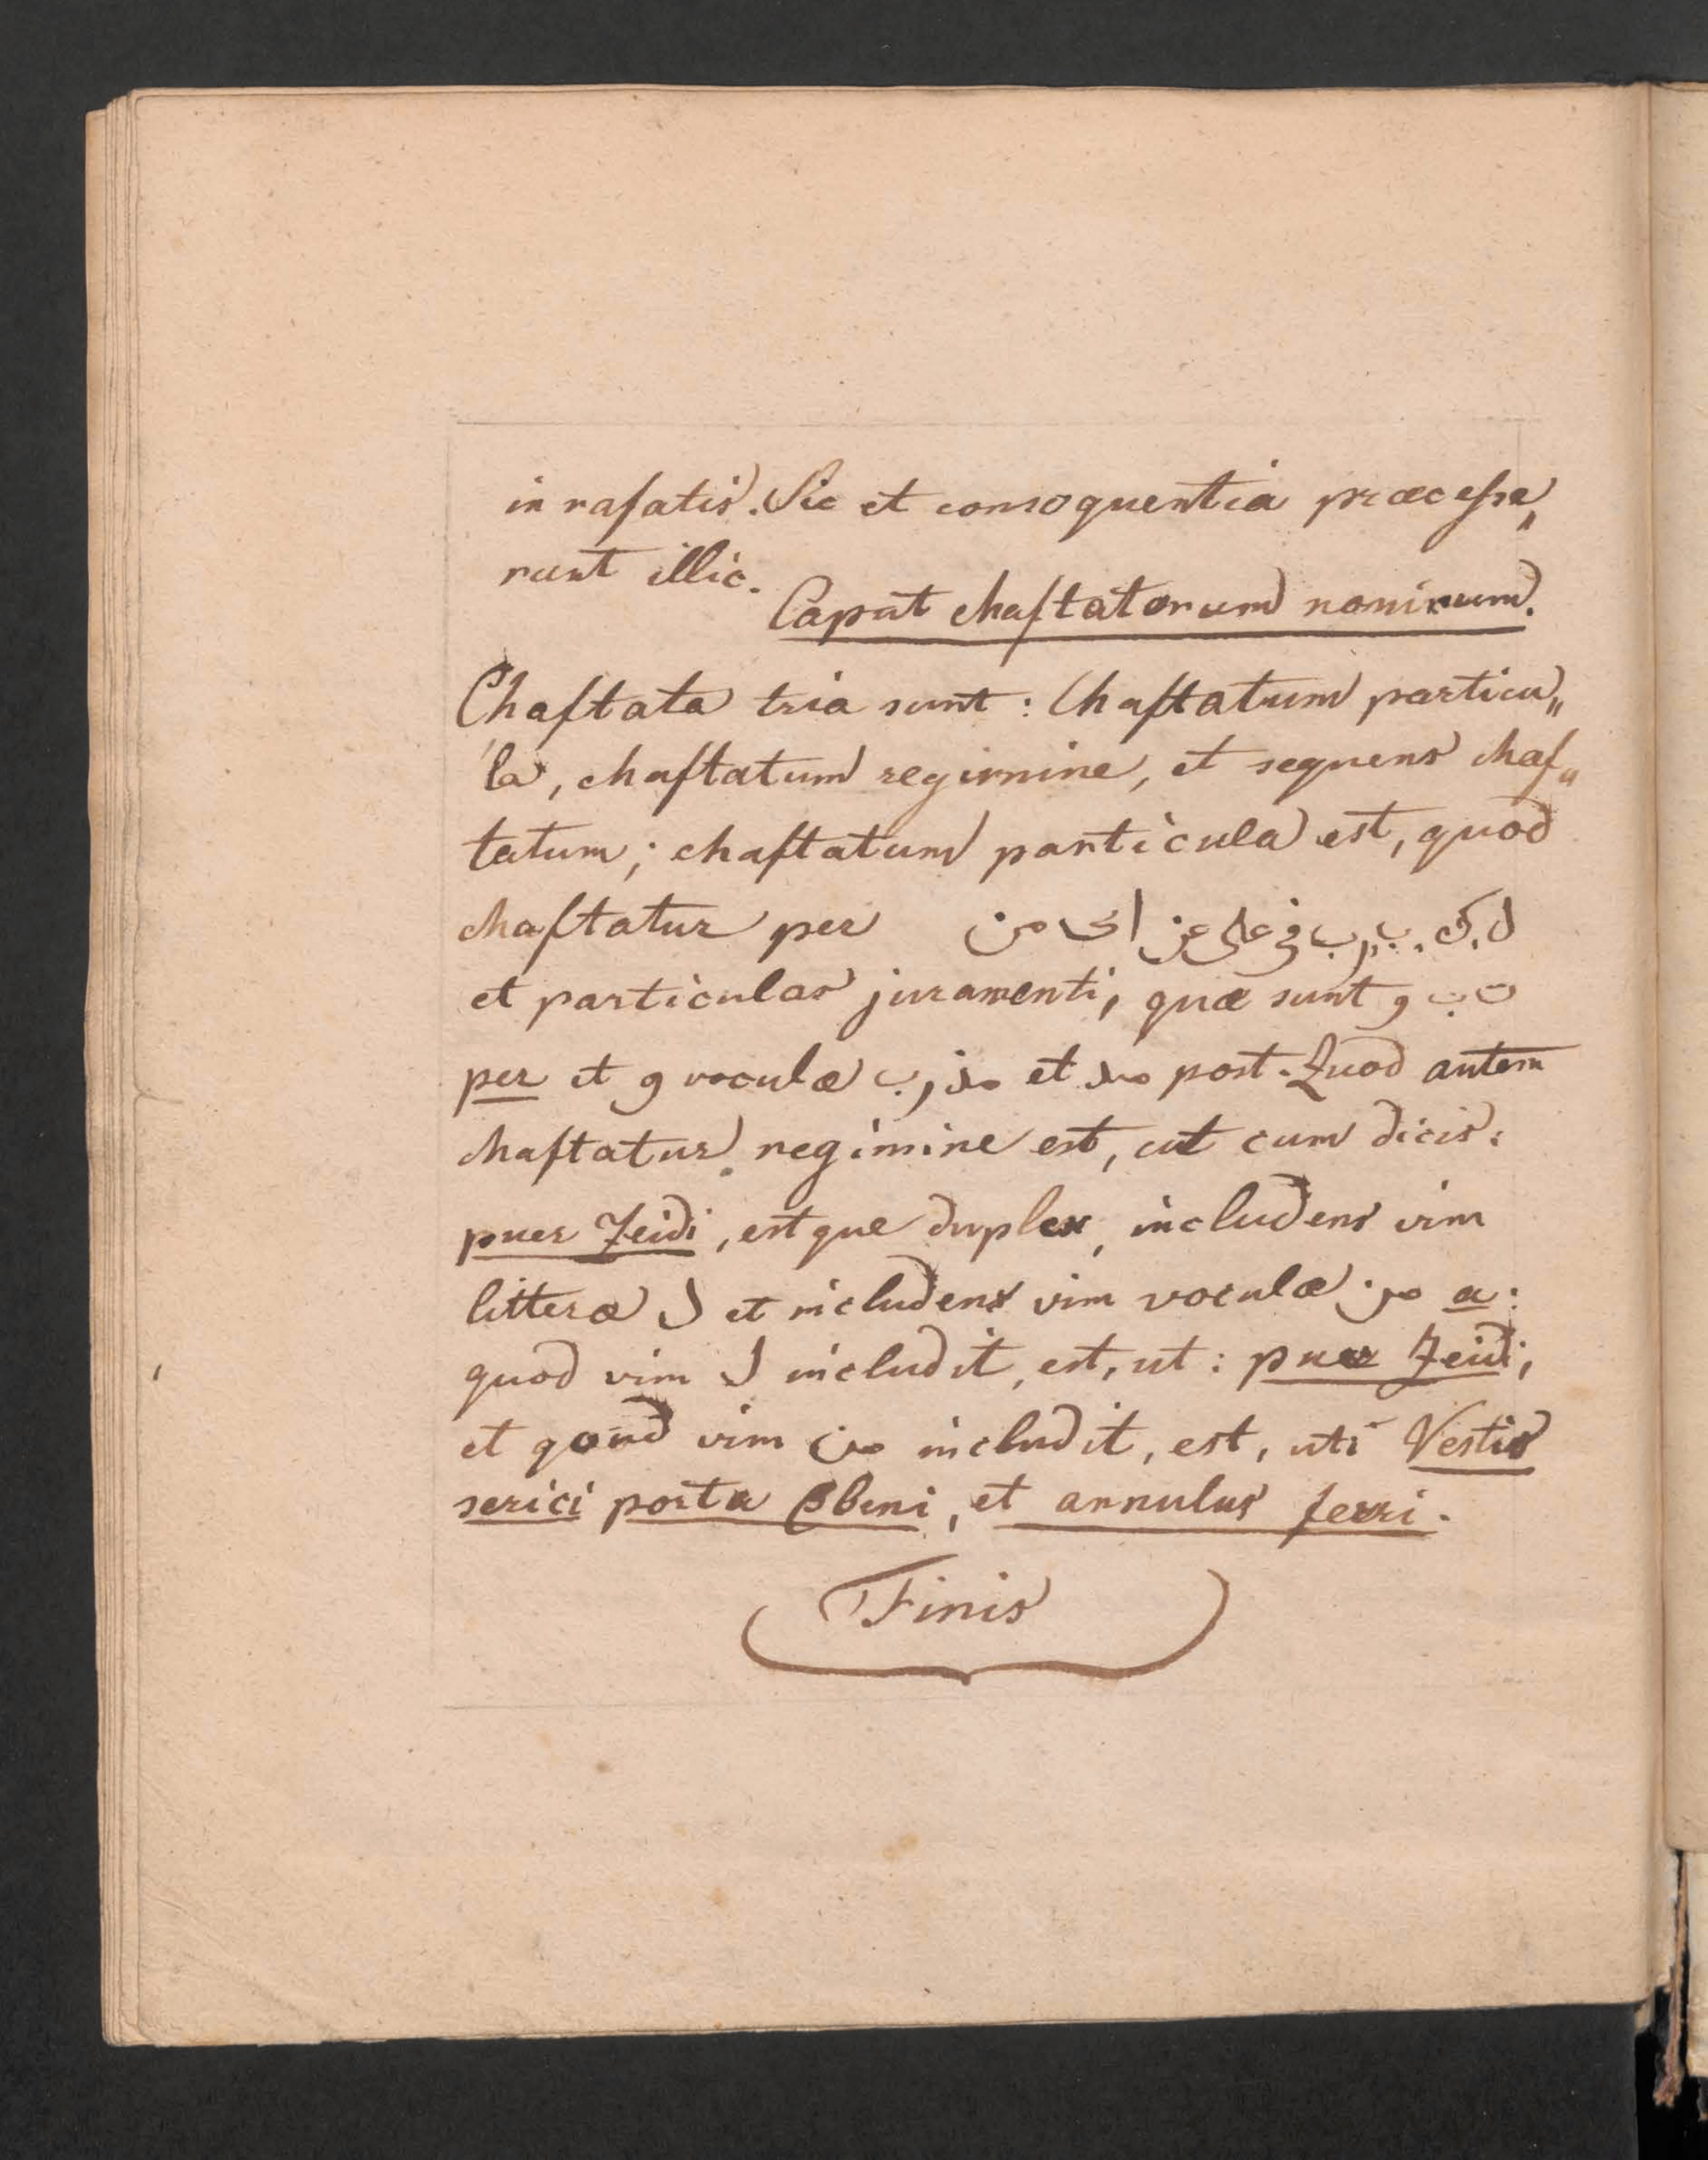 in rafatis. Sic et consequentia præcesse„
runt illic.
Caput chaftatorum nominum.
Chaftata tria sunt: Chaftatum particu„
la, chaftatum regimine, et sequens chaf„
tatum; chaftatum particula est, quod
chaftatur per من الى عن على في رب ب. ك. ل
et particulas juramenti, quæ sunt و ب ت
per et و voculæ رب, مذ et منذ post. Quod autem
chaftatur regimine est, ut cum dicis:
puer Zeidi, estque duplex, includens vim
litteræ ل et includens vim voculæ من a:
quod vim ل includit, est, ut: puer Zeidi,
et qoud vim من includit, est, uti Vestis
serici porta Ebeni, et annulus ferri.
Finis